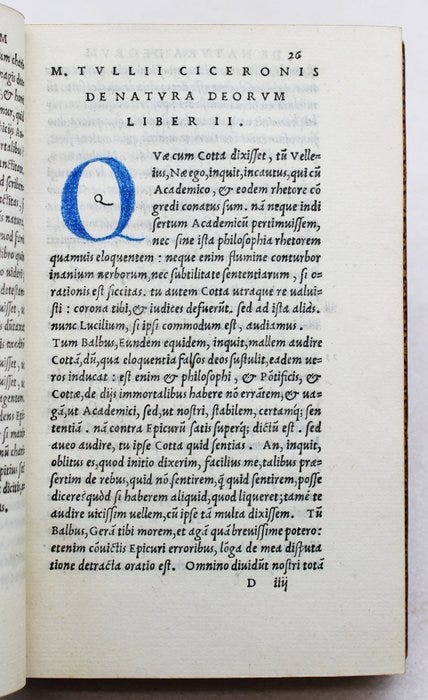 26
M. TVLLII CICERONIS
DE NATVRA DEORVM
LIBER II.
QVæ cum Cotta dixisset, tū Velle-
ius, Næ ego, inquit, incautus, qui cū
Academico, & eodem rhetore cō
gredi conatus sum. nā neque indi
sertum Academicū pertimuissem,
nec sine ista philosophia rhetorem
quamuis eloquentem : neque enim flumine conturbor
inanium uerborum, nec subtilitate sententiarum, si o-
rationis est siccitas. tu autem Cotta utraque re ualui-
sti : corona tibi, & iudices defuerūt. sed ad ista aliâs.
nunc Lucilium, si ipsi commodum est, audiamus.
Tum Balbus, Eundem equidem, inquit, mallem audire
Cottā, dū, qua eloquentia falsos deos sustulit, eadem ue-
ros inducat : est enim & philosophi, & Pōtificis, &
Cottæ, de dijs immortalibus habere nō errātem, & ua-
gā, ut Academici, sed, ut nostri, stabilem, certamq; sen
tentiā. nā contra Epicurū satis superq; dictū est. sed
aueo audire, tu ipse Cotta quid sentias. An, inquit,
oblitus es, quod initio dixerim, facilius me, talibus præ-
sertim de rebus, quid nō sentirem, q̄ quid sentirem, posse
dicere? quòd si haberem aliquid, quod liqueret; tamē te
audire uicissim uellem, cū ipse tā multa dixissem. Tū
Balbus, Gerā tibi morem, et agā quā breuissime potero:
etenim cōuictis Epicuri erroribus, lōga de mea disputa
tione detracta oratio est. Omnino diuidūt nostri totā
D iiij